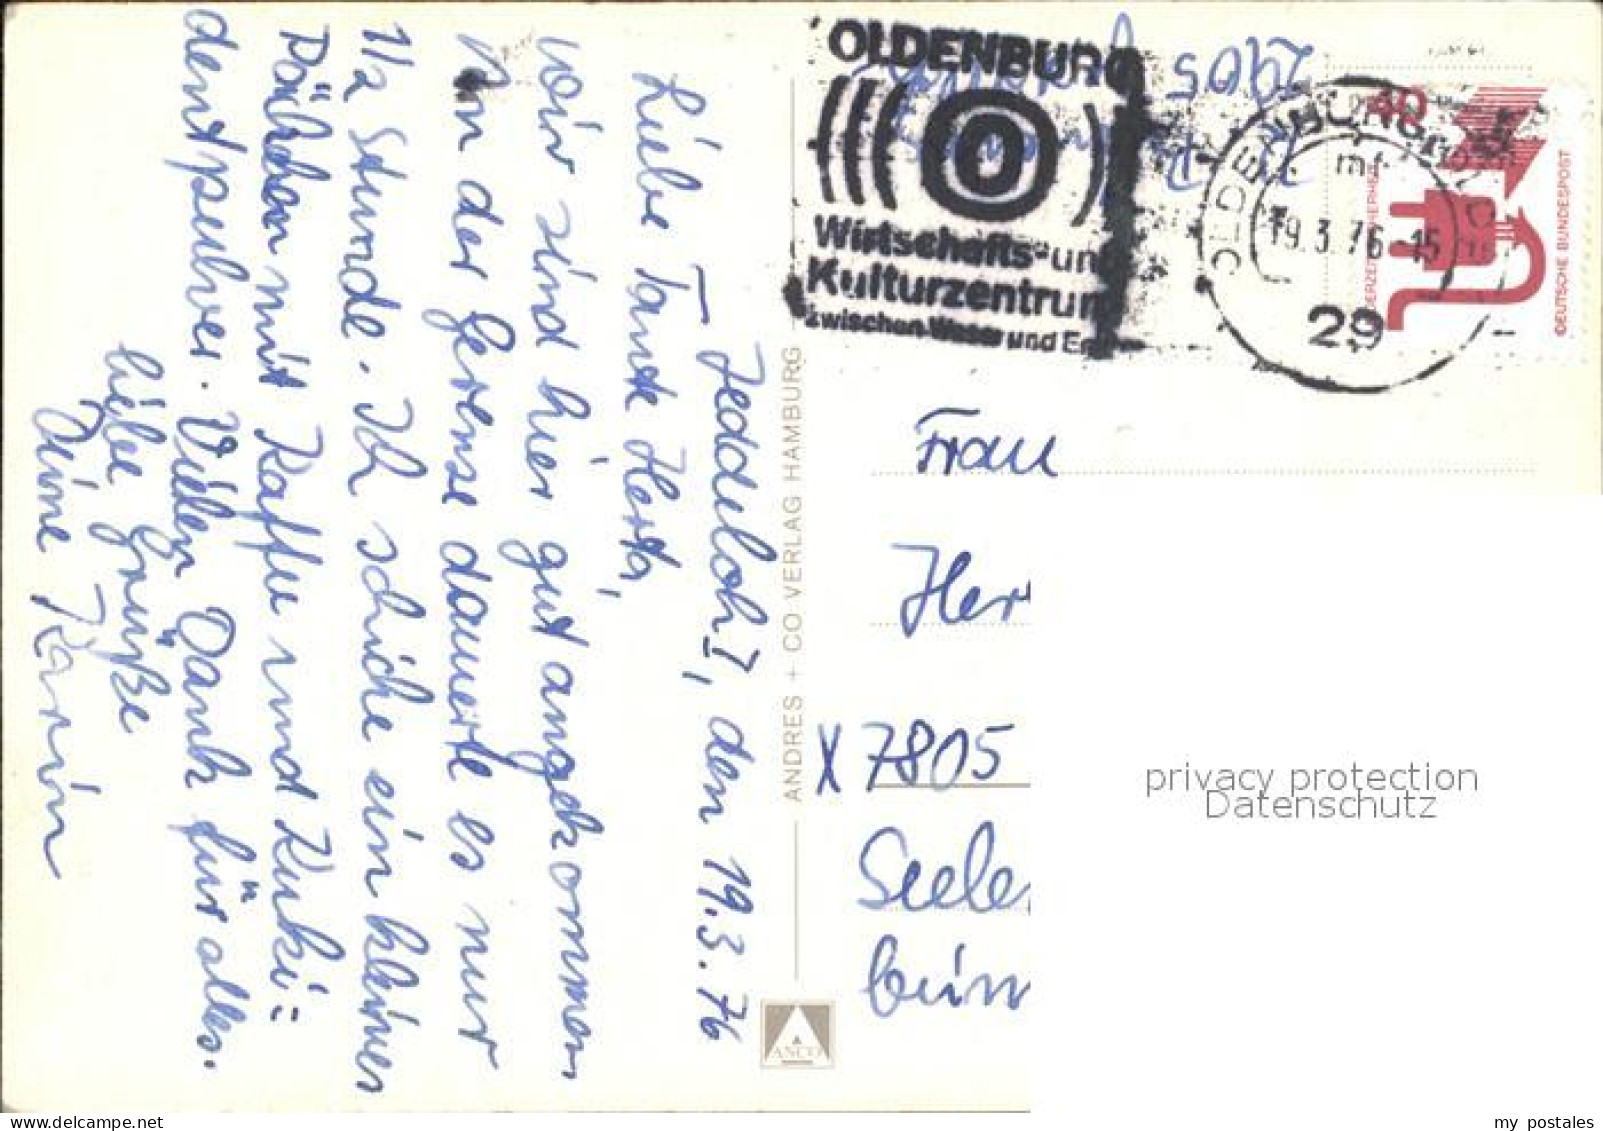 Jeddeloh I, den 19.3.76
Liebe Tante Herta,
wir sind hier gut angekommen.
An der Grense dauerte es nur
1/2 Stunde. Ich schicke ein kleines
Päckchen mit Kaffee und Kuki=
dentpulver. Vielen Dank für alles.
Liebe Grüße
Deine Karin
ANDRES + CO VERLAG HAMBURG
ANCO
2905
OLDENBURG
O
Wirtschafts- und
Kulturzentrum
zwischen Weser und Ems
OLDENBURG, OLDB
mf
19.3.76-15
29
40
DEUTSCHE BUNDESPOST
Frau
Her
X 7805
Seele
beim
privacy protection
Datenschutz
www.delcampe.net
my postales